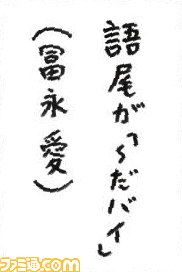 語尾が「～だバイ」
（冨永愛）
ファミ通.com